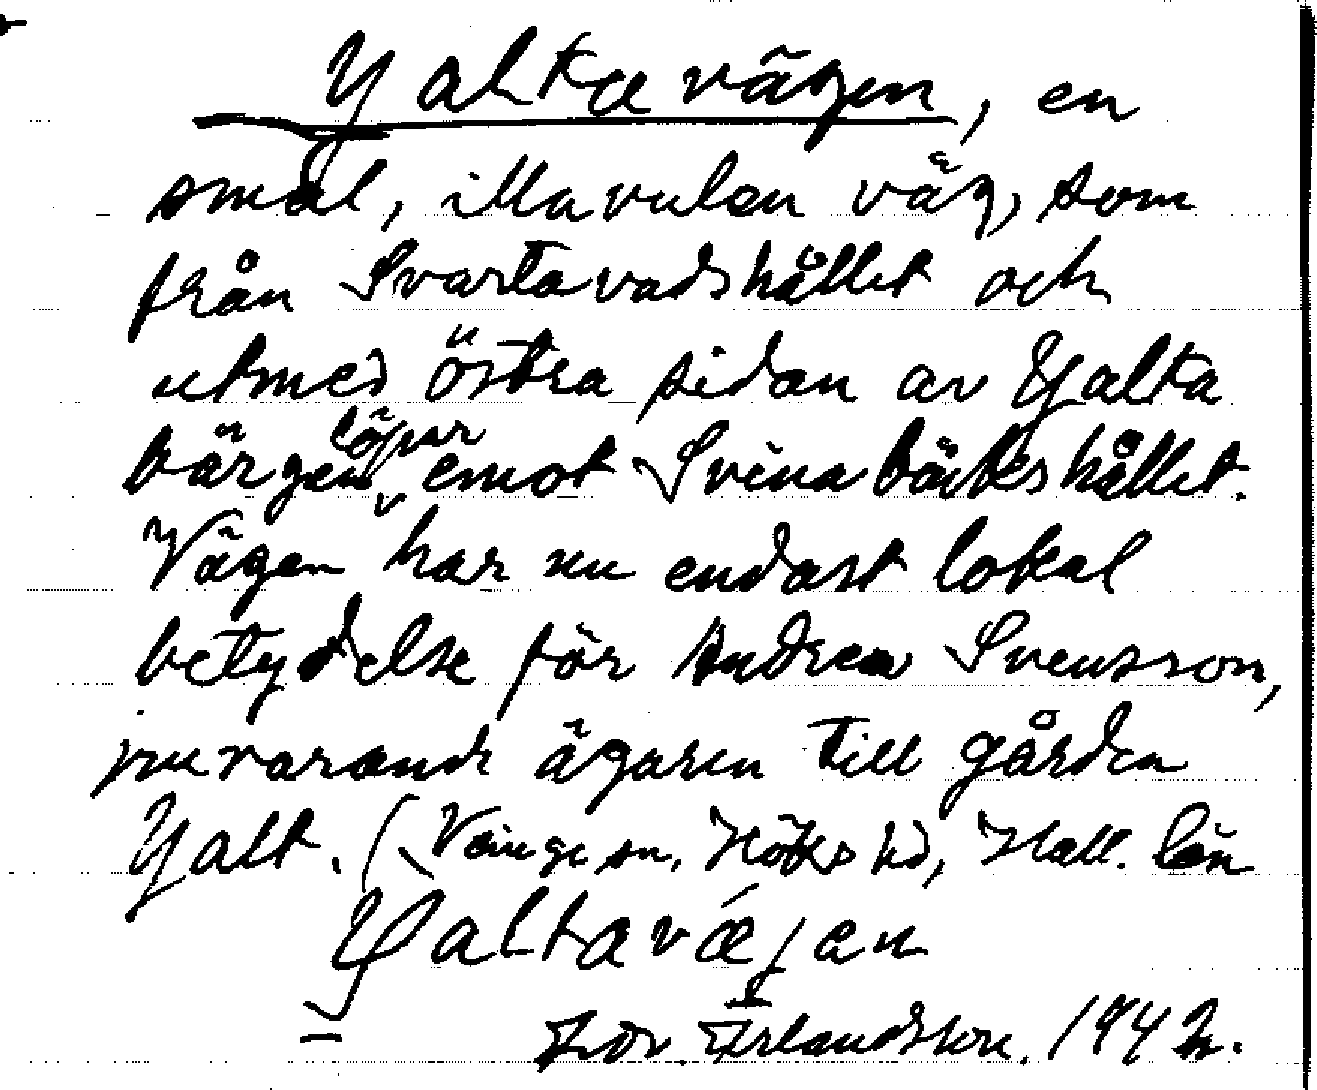 Yalta vägen, en
smal, illa vulen väg, som
från Svartavadshållet och
utmed östra sidan av Yalta
bärgen löper emot Svinabäckshållet.
Vägen har nu endast lokal
betydelse för Andrea Svensson,
nuvarande ägaren till gården
Yalt. (Veinge sn. Höks hd, Hall. län
Yaltavægen
Erlandsson. 1942.